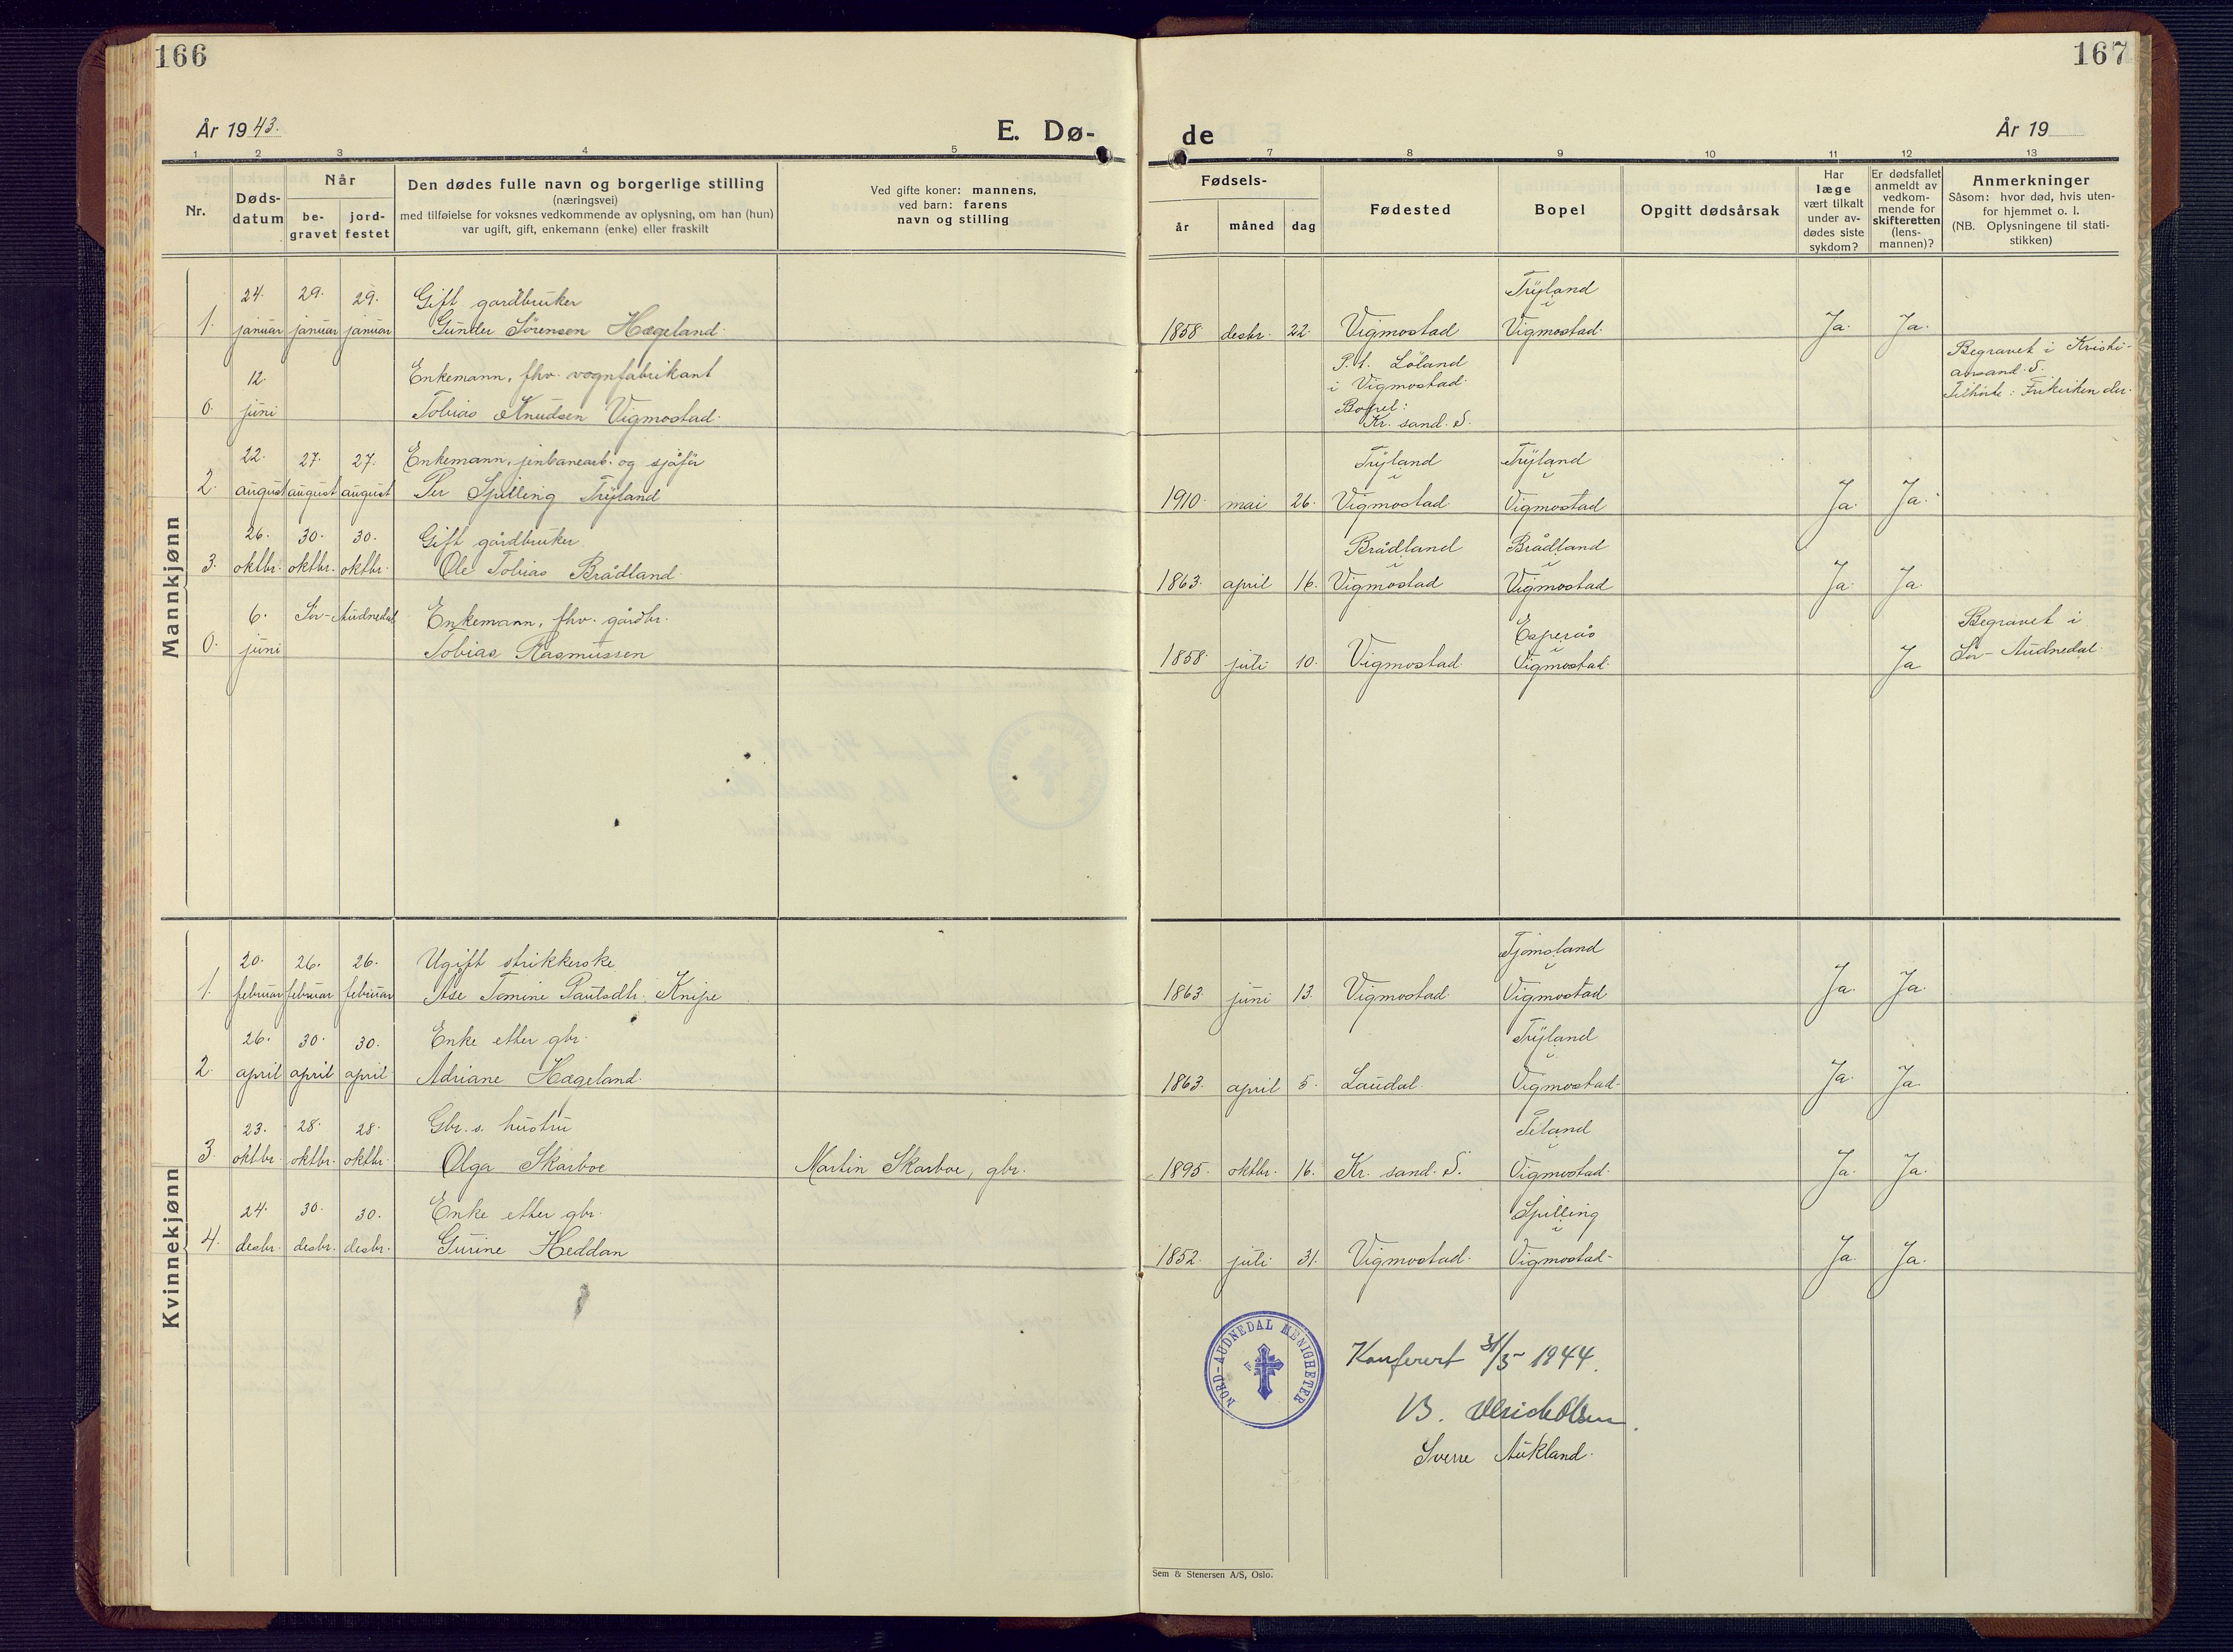 166
År 1943.
E. Dø-
1 2 3 4 5
Nr.
Døds-
datum
Når
be-
gravet
jord-
festet
Den dødes fulle navn og borgerlige stilling
(næringsvei)
med tilføielse for voksnes vedkommende av oplysning, om han (hun)
var ugift, gift, enkemann (enke) eller fraskilt
Ved gifte koner: mannens,
ved barn: farens
navn og stilling
Mannkjønn
24. 29. 29. Gift gardbruker
1. januar januar januar Gunder Sørensen Hægeland.
12. Enkemann, fhv. vognfabrikant
0. juni Tobias Knudsen Vigmostad.
22. 27. 27. Enkemann, jenbanearb. og sjåfør
2. august august august Per Spilling Tryland
26. 30. 30. Gift gårdbruker
3. oktbr. oktbr. oktbr. Ole Tobias Brådland.
6. Sør-Audnedal Enkemann, fhv. gårdbr.
0. juni Tobias Rasmussen
Kvinnekjønn
20. 26. 26. Ugift strikkerske
1. februar februar februar Åse Tomine Paulsdtr. Knipe
26. 30. 30. Enke etter gbr.
2. april april april Adriane Hægeland.
23. 28. 28. Gbr.s. hustru
3. oktbr. oktbr. oktbr. Olga Skarboe Martin Skarboe, gbr.
24. 30. 30. Enke etter gbr.
4. desbr. desbr. desbr. Gurine Heddan
167
de
År 19
7 8 9 10 11 12 13
Fødsels-
år måned dag
Fødested
Bopel
Opgitt dødsårsak
Har
læge
vært tilkalt
under av-
dødes siste
sykdom?
Er dødsfallet
anmeldt av
vedkom-
mende for
skifteretten
(lens-
mannen)?
Anmerkninger
Såsom: hvor død, hvis uten-
for hjemmet o. l.
(NB. Oplysningene til stati-
stikken)
Tryland
i
1858 desbr. 22. Vigmostad Vigmostad. Ja. Ja.
P.t. Löland
i Vigmostad.
Bopel:
Kr. sand. S.
Begravet i Kristi-
ansand. S.
Tilhörte: Frikirken der.
Tryland Tryland
i i
1910. mai 26. Vigmostad Vigmostad Ja. Ja.
Brådland Brådland
i i
1863. april 16. Vigmostad Vigmostad Ja. Ja.
Esperås
i
1858. juli 10. Vigmostad. Vigmostad. Ja
Begravet i
Sør-Audnedal.
Tjomsland
i
1863 juni 13. Vigmostad. Vigmostad Ja. Ja.
Tryland
i
1863. april 5. Laudal. Vigmostad. Ja. Ja.
Teland
i
1895. oktbr. 16. Kr. sand. S. Vigmostad. Ja. Ja.
Spilling
i
1852. juli 31. Vigmostad. Vigmostad. Ja. Ja.
NORD-AUDNEDAL MENIGHETER
Konferert 31/5 1944.
B. Ulrich Olsen
Sverre Aukland.
Sem & Stenersen A/S, Oslo.